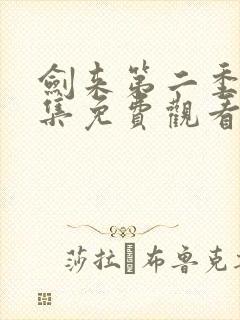 劍来第二季
集免費觀看
莎拉·布魯克